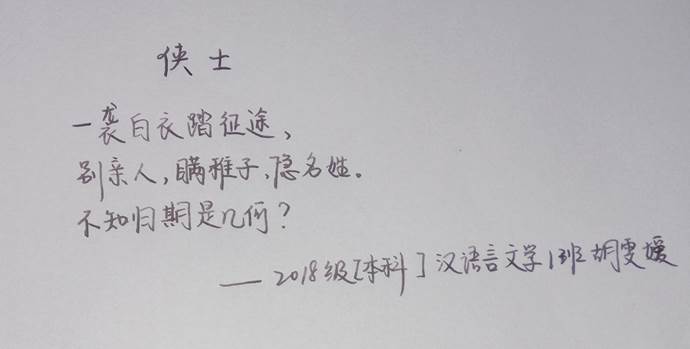 侠士
一袭白衣踏征途，
别亲人，瞒稚子，隐名姓。
不知归期是几何？
——2018级[本科]汉语言文学1班胡雯媛